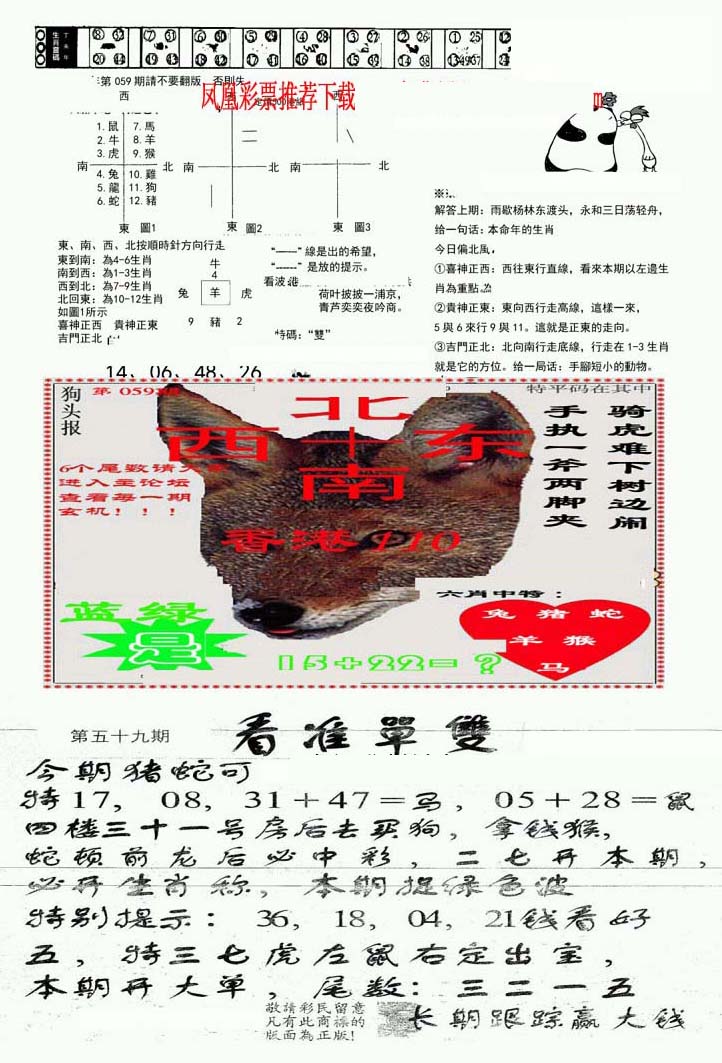 生肖靈碼
年第059期請不要翻版，否則失
凤凰彩票推荐下载
西
1. 鼠 7. 馬
2. 牛 8. 羊
3. 虎 9. 猴
南 北 南 北 南 北
4. 兔 10. 雞
5. 龍 11. 狗
6. 蛇 12. 豬
東 圖1
東 圖2
東 圖3
東、南、西、北按順時針方向行走
東到南：為4-6生肖
南到西：為1-3生肖
西到北：為7-9生肖
北回東：為10-12生肖
如圖1所示
喜神正西 貴神正東
吉門正北
牛
4
兔 羊 虎
9 豬 2
“——”線是出的希望，
“------”是放的提示。
看波
荷叶披披一浦京，
青芦奕奕夜吟商。
特碼：“雙”
14、06、48、26
解答上期：雨歇杨林东渡头，永和三日荡轻舟，
给一句话：本命年的生肖
今日偏北風，
①喜神正西：西往東行直線，看來本期以左邊生
肖為重點。
②貴神正東：東向西行走高線，這樣一來，
5與6來行9與11。這就是正東的走向。
③吉門正北：北向南行走底線，行走在1-3生肖
就是它的方位。给一局话：手腳短小的動物。
狗头报
第059期
特平码在其中
北
西十东
南
香港410
6个尾数请大
进入主论坛
查看每一期
玄机！！！
骑虎难下树边闹
手执一斧两脚夹
六肖中特：
兔 猪 蛇
羊 猴
马
蓝绿
是
15+22=？
第五十九期
看准單雙
今期猪蛇可
特17， 08， 31＋47＝马， 05＋28＝鼠
四楼三十一号房后去买狗，拿钱猴，
蛇顿前龙后必中彩，二七开本期，
必开生肖称，本期捉绿色波
特别提示： 36， 18， 04， 21钱看好
五，特三七虎左鼠右定出宝，
本期开大单，尾数：三二一五
敬請彩民留意
凡有此商標的
版面為正版!
长期跟踪赢大钱